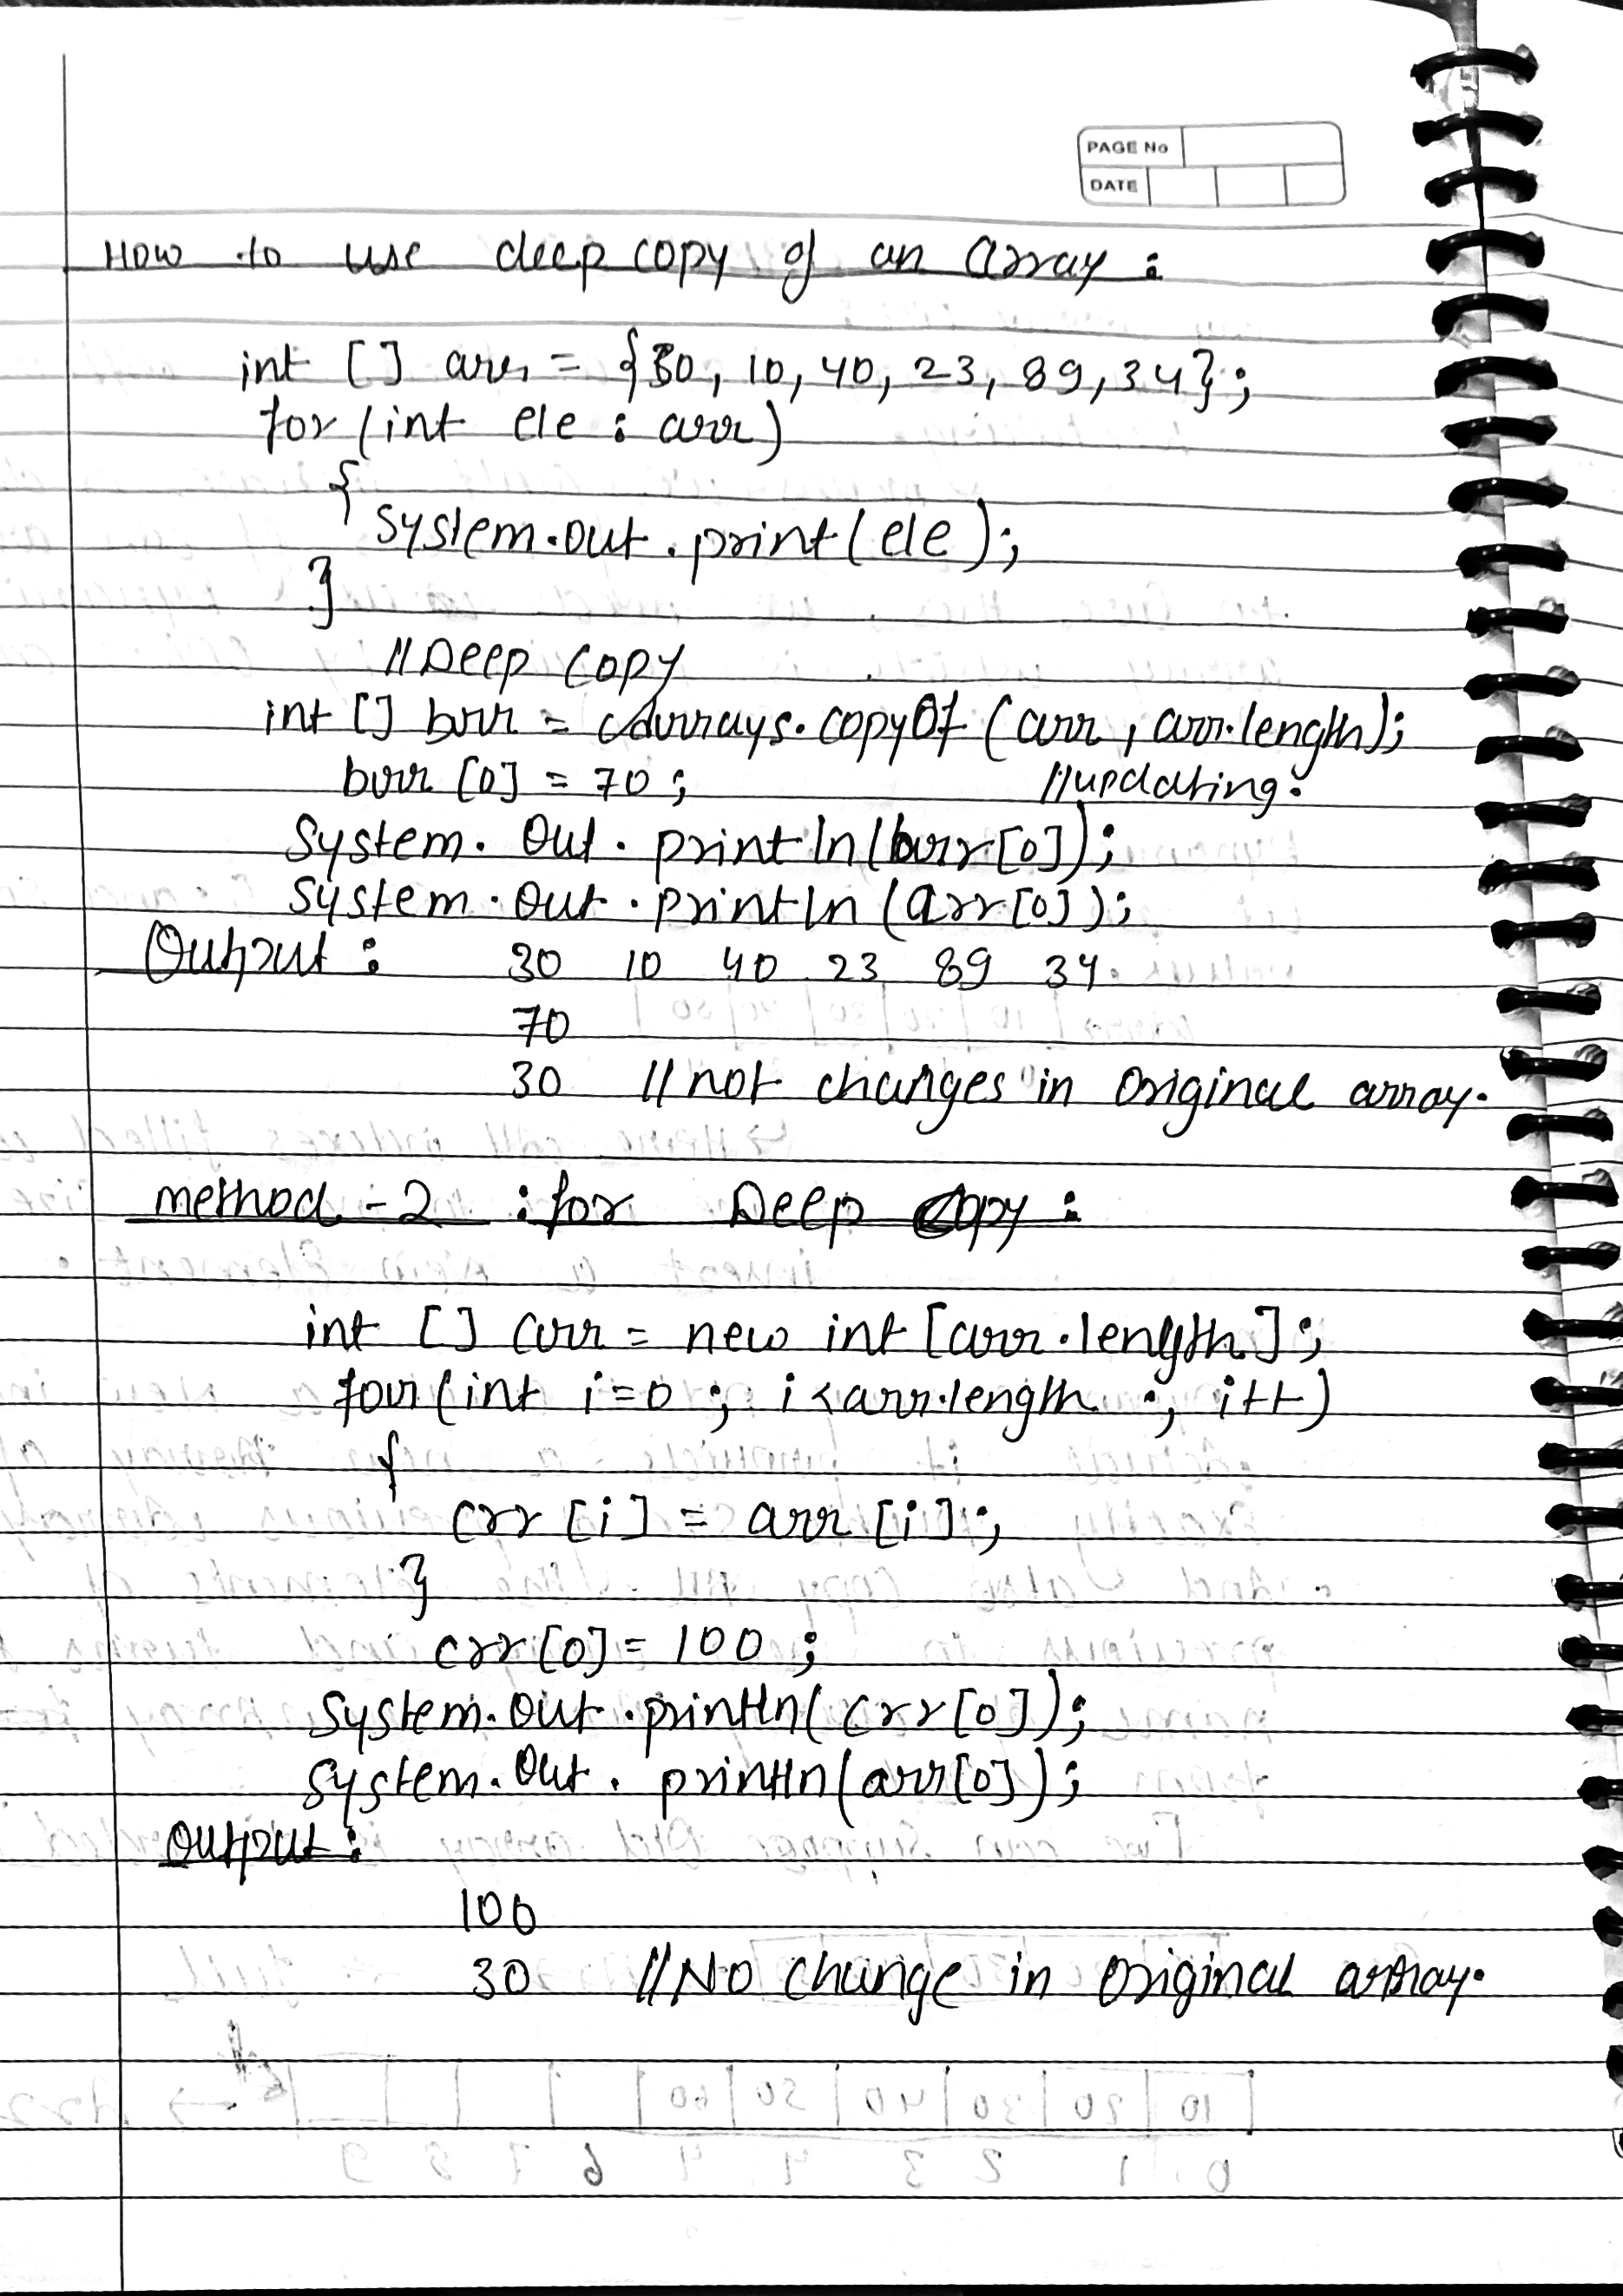 PAGE No
DATE
How to use deep copy of an Array :
int [] arr = {30, 10, 40, 23, 89, 34};
for (int ele : arr)
{
System.out.print(ele);
}
//Deep Copy
int [] brr = Arrays.copyOf (arr, arr.length);
brr [0] = 70; //updating.
System. Out. println(brr[0]);
System.out.println (arr[0]);
Output : 30 10 40 23 89 34.
70
30 //not changes in Original array.
method -2 : for Deep Copy :
int [] crr = new int [arr.length];
for (int i=0 ; i<arr.length ; i++)
{
crr [i] = arr [i];
}
crr [0] = 100 ;
System.out.println(crr[0]);
System.out. println(arr[0]);
Output :
100
30 //No change in Original array.